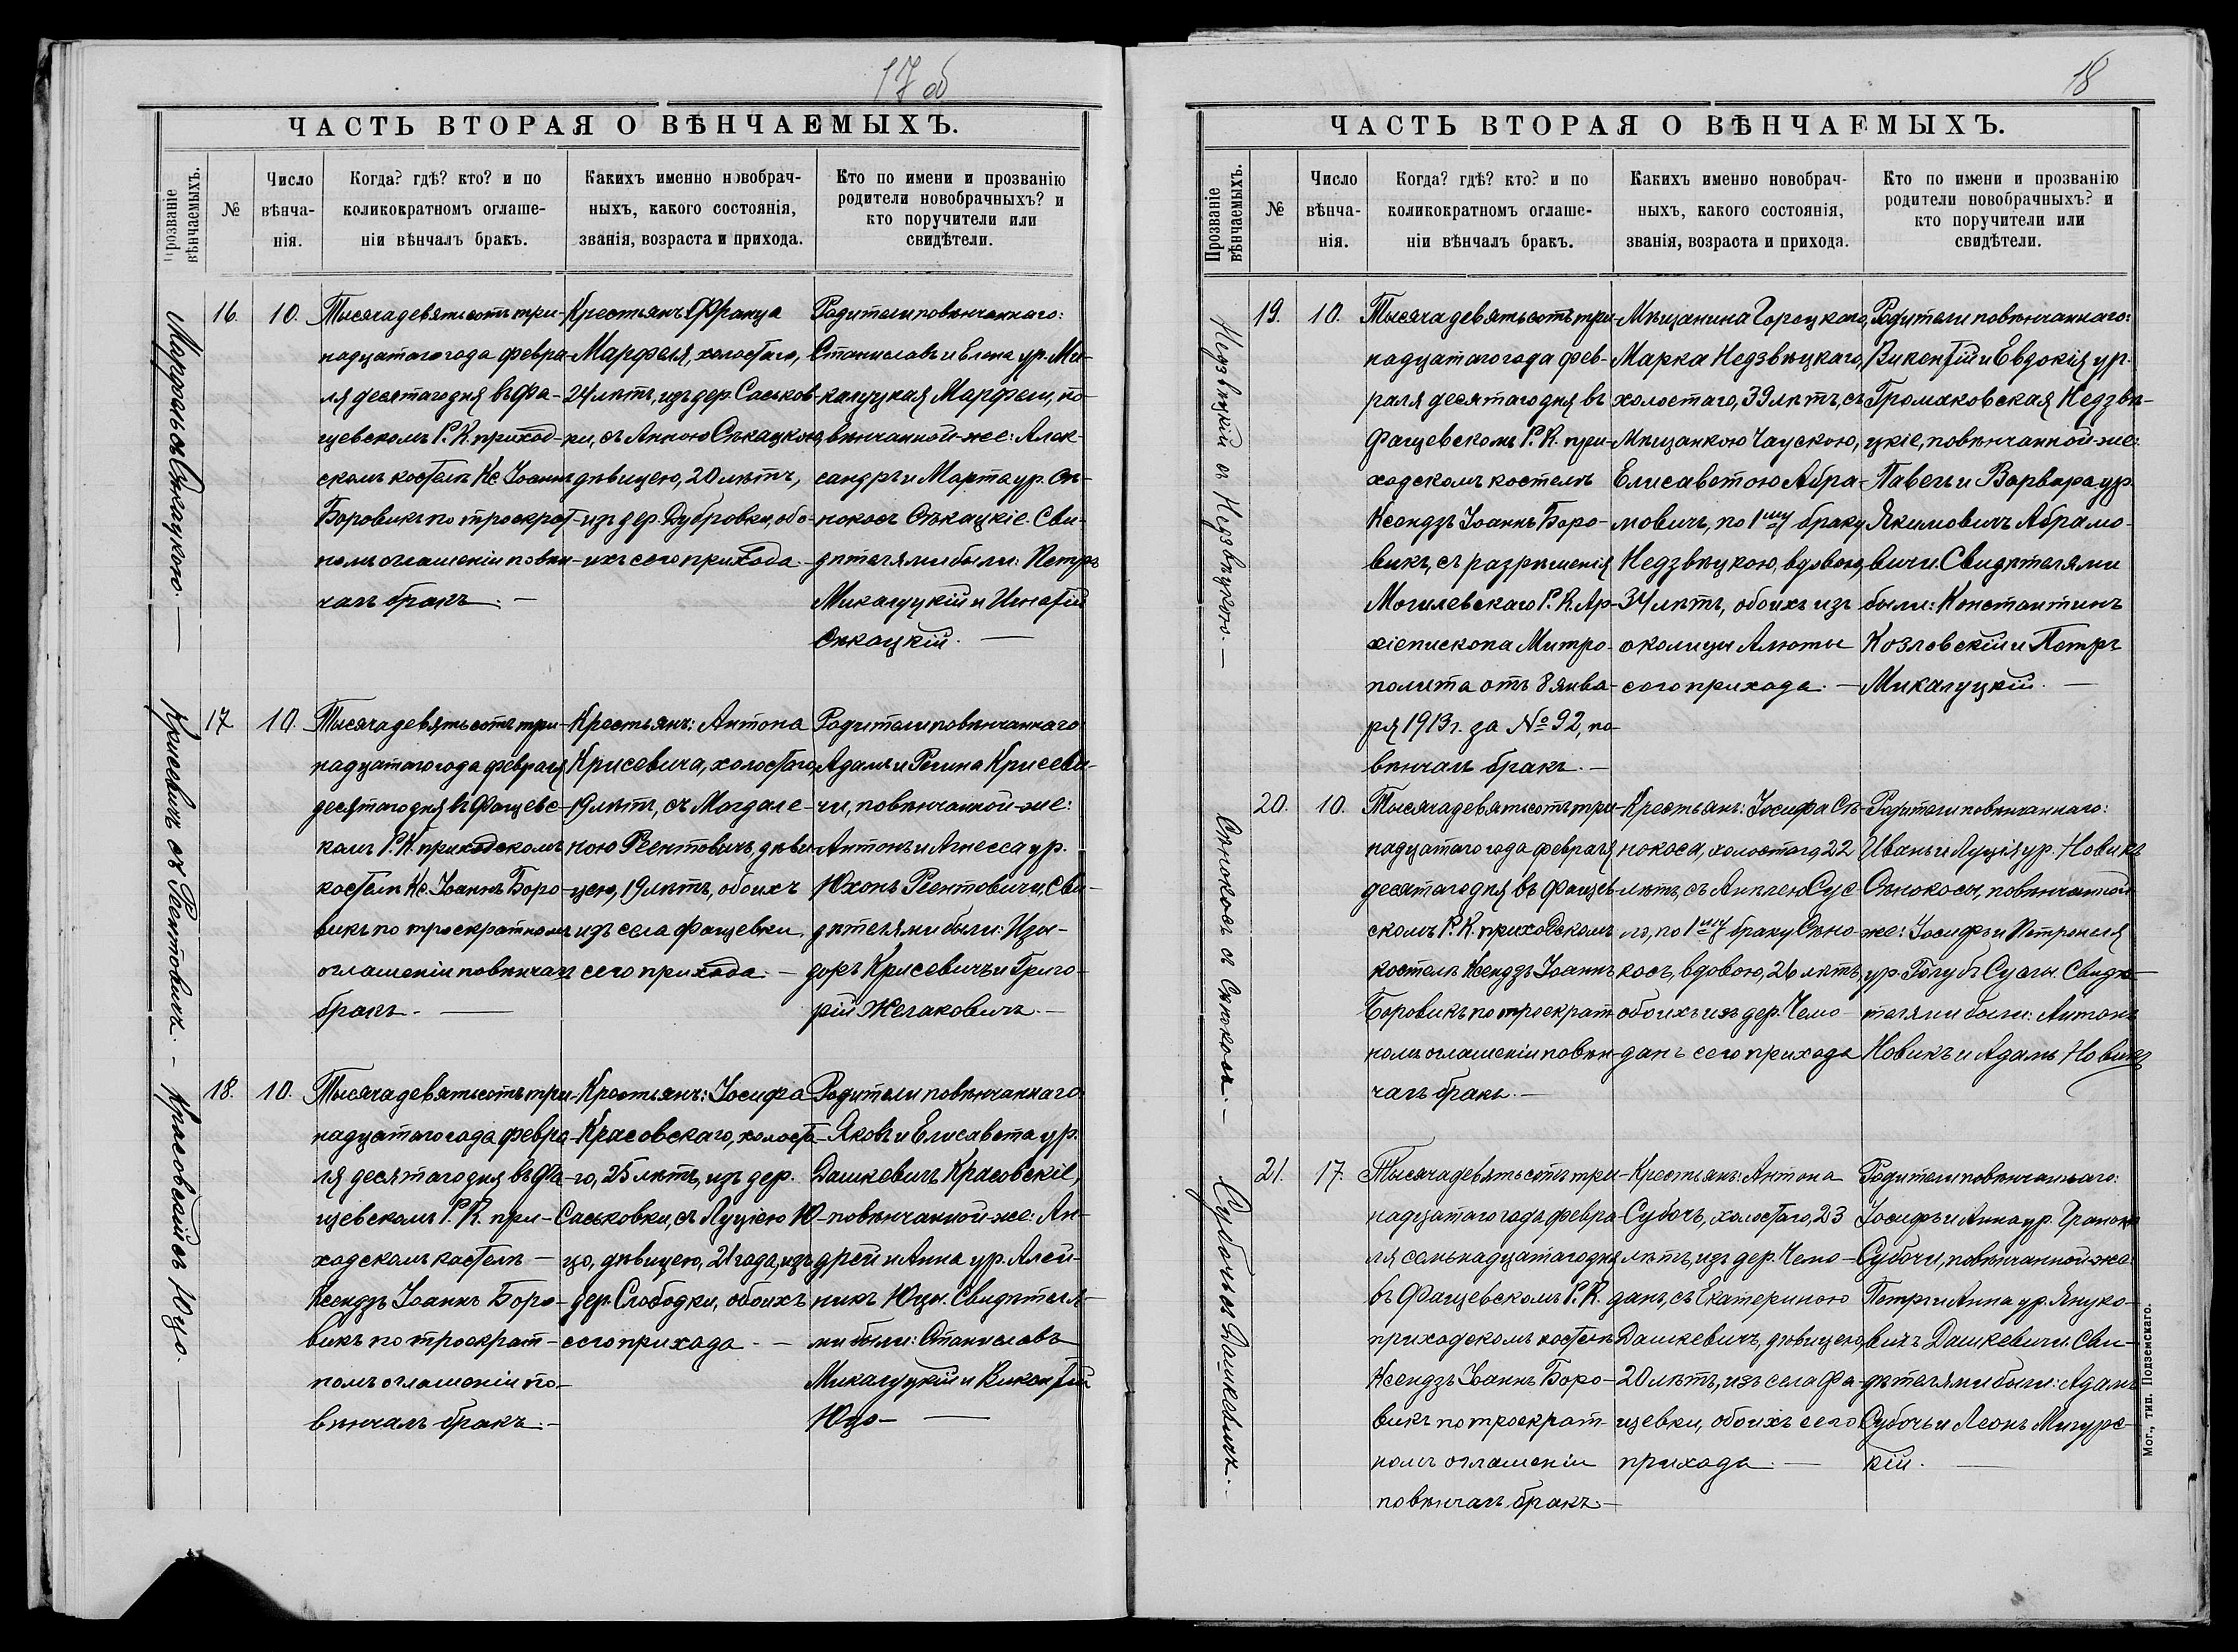 17 об
ЧАСТЬ ВТОРАЯ О ВѢНЧАЕМЫХЪ.
Прозваніе вѣнчаемыхъ.
№
Число вѣнча-
нія.
Когда? гдѣ? кто? и по
коликократномъ оглаше-
ніи вѣнчалъ бракъ.
Какихъ именно новобрач-
ныхъ, какого состоянія,
званія, возраста и прихода.
Кто по имени и прозванію
родители новобрачныхъ? и
кто поручители или
свидѣтели.
Марфель съ Сѣкацкою. —
16.
10.
Тысяча девятьсотъ три-
надцатаго года февра-
ля десятаго дня въ Фа-
щевскомъ Р. К. приход-
скомъ костелѣ Кс. Іоаннъ
Боровикъ по троекрат-
номъ оглашеніи повѣн-
чалъ бракъ. —
Крестьянъ Франца
Марфеля, холостаго,
24 лѣтъ, изъ дер. Саськов-
ки, съ Анною Сѣкацкою,
дѣвицею, 20 лѣтъ,
изъ дер. Дубровки, обо-
ихъ сего прихода. —
Родители повѣнчаннаго:
Станиславъ и Елена ур. Ми-
калуцкая Марфели, по-
вѣнчанной-же: Алек-
сандръ и Марта ур. Сѣ-
нокосъ Сѣкацкіе. Сви-
дѣтелями были: Петръ
Микалуцкій и Игнатій
Сѣкацкій. —
Крисевичъ съ Реентовичъ. —
17
10.
Тысяча девятьсотъ три-
надцатаго года февраля
десятаго дня въ Фащевс-
комъ Р. К. приходскомъ
костелѣ Кс. Іоаннъ Боро-
викъ по троекратномъ
оглашеніи повѣнчалъ
бракъ. —
Крестьянъ: Антона
Крисевича, холостаго,
19 лѣтъ, съ Магдале-
ною Реентовичъ, дѣви-
цею, 19 лѣтъ, обоихъ
изъ села Фащевки,
сего прихода. —
Родители повѣнчаннаго:
Адамъ и Регина Крисеви-
чи, повѣнчанной-же:
Антонъ и Агнесса ур.
Юхонъ Реентовичи, Сви-
дѣтелями были: Изи-
доръ Крисевичъ и Григо-
рій Желаковичъ. —
Красовскій съ Юцо. —
18.
10.
Тысяча девятьсотъ три-
надцатаго года февра-
ля десятаго дня въ Фа-
щевскомъ Р. К. при-
ходскомъ костелѣ —
Ксендзъ Іоаннъ Боро-
викъ по троекрат-
номъ оглашеніи по-
вѣнчалъ бракъ. —
Крестьянъ: Іосифа
Красовскаго, холоста-
го, 25 лѣтъ, изъ дер.
Саськовки, съ Луціею Ю-
цо, дѣвицею, 21 года, изъ
дер. Слободки, обоихъ
сего прихода. —
Родители повѣнчаннаго:
Яковъ и Елисавета ур.
Дашкевичъ Красовскіе,
повѣнчанной-же: Ан-
дрей и Анна ур. Алей-
никъ Юцы. Свидѣтеля-
ми были: Станиславъ
Микалуцкій и Викентій
Юцо —
18
ЧАСТЬ ВТОРАЯ О ВѢНЧАЕМЫХЪ.
Прозваніе вѣнчаемыхъ.
№
Число вѣнча-
нія.
Когда? гдѣ? кто? и по
коликократномъ оглаше-
ніи вѣнчалъ бракъ.
Какихъ именно новобрач-
ныхъ, какого состоянія,
званія, возраста и прихода.
Кто по имени и прозванію
родители новобрачныхъ? и
кто поручители или
свидѣтели.
Недзвѣцкій съ Недзвѣцкою. —
19.
10.
Тысяча девятьсотъ три-
надцатаго года фев-
раля десятаго дня въ
Фащевскомъ Р. К. при-
ходскомъ костелѣ
Ксендзъ Іоаннъ Боро-
викъ, съ разрѣшенія
Могилевскаго Р. К. Ар-
хіепископа Митро-
полита отъ 8 янва-
ря 1913 г. за № 92, по-
вѣнчалъ бракъ. —
Мѣщанина Горецкаго,
Марка Недзвѣцкаго,
холостаго, 39 лѣтъ, съ
Мѣщанкою Чаускою,
Елисаветою Абра-
мовичъ, по 1му браку
Недзвѣцкою, вдовою,
34 лѣтъ, обоихъ изъ
околицы Алюты
сего прихода. —
Родители повѣнчаннаго:
Викентій и Евдокія ур.
Громаковская Недзвѣ-
цкіе, повѣнчанной-же:
Павелъ и Варвара ур.
Якимовичъ Абрамо-
вичи. Свидѣтелями
были: Константинъ
Козловскій и Петръ
Микалуцкій. —
Сѣнокосъ съ Сѣнокосъ. —
20.
10.
Тысяча девятьсотъ три-
надцатаго года февраля
десятаго дня въ Фащев-
скомъ Р. К. приходскомъ
костелѣ Ксендзъ Іоаннъ
Боровикъ по троекрат-
номъ оглашеніи повѣн-
чалъ бракъ. —
Крестьянъ: Іосифа Сѣ-
нокоса, холостаго, 22
лѣтъ, съ Анною Сус-
ло, по 1му браку Сѣно-
косъ, вдовою, 26 лѣтъ,
обоихъ изъ дер. Чемо-
данъ сего прихода
Родители повѣнчаннаго:
Иванъ и Луція ур. Новикъ
Сѣнокосы, повѣнчанной-
же: Іосифъ и Петронеля
ур. Голубъ Суслы. Свидѣ-
телями были: Антонъ
Новикъ и Адамъ Новикъ
Субочъ съ Дашкевичъ. —
21.
17.
Тысяча девятьсотъ три-
надцатаго года февра-
ля семьнадцатаго дня
въ Фащевскомъ Р. К.
приходскомъ костелѣ
Ксендзъ Іоаннъ Боро-
викъ по троекрат-
номъ оглашеніи
повѣнчалъ бракъ —
Крестьянъ: Антона
Субочъ, холостаго, 23
лѣтъ, изъ дер. Чемо-
данъ, съ Екатериною
Дашкевичъ, дѣвицею,
20 лѣтъ, изъ села Фа-
щевки, обоихъ сего
прихода. —
Родители повѣнчаннаго:
Іосифъ и Анна ур.
Субочи, повѣнчанной-же:
Петръ и Анна ур. Януко-
вичъ Дашкевичи. Сви-
дѣтелями были: Адамъ
Субочъ и Леонъ Мигурс-
кій. —
Мог., тип. Подземскаго.